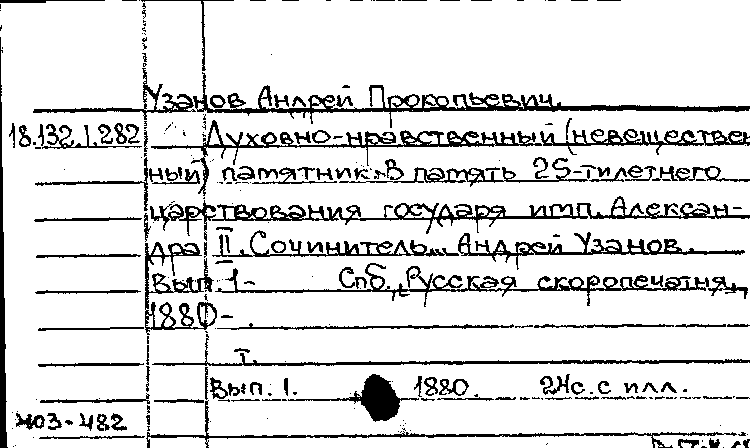 Узанов, Андрей Прокопьевич.
18.132.1.282 Духовно-нравственный (невеществен-
ный) памятник. В память 25-тилетнего
царствования государя имп. Алексан-
дра II. Сочинитель... Андрей Узанов.
Вып. 1- Спб., "Русская скоропечатня",
1880- .
т.
Вып. 1. 1880. 24с. с илл.
403-482